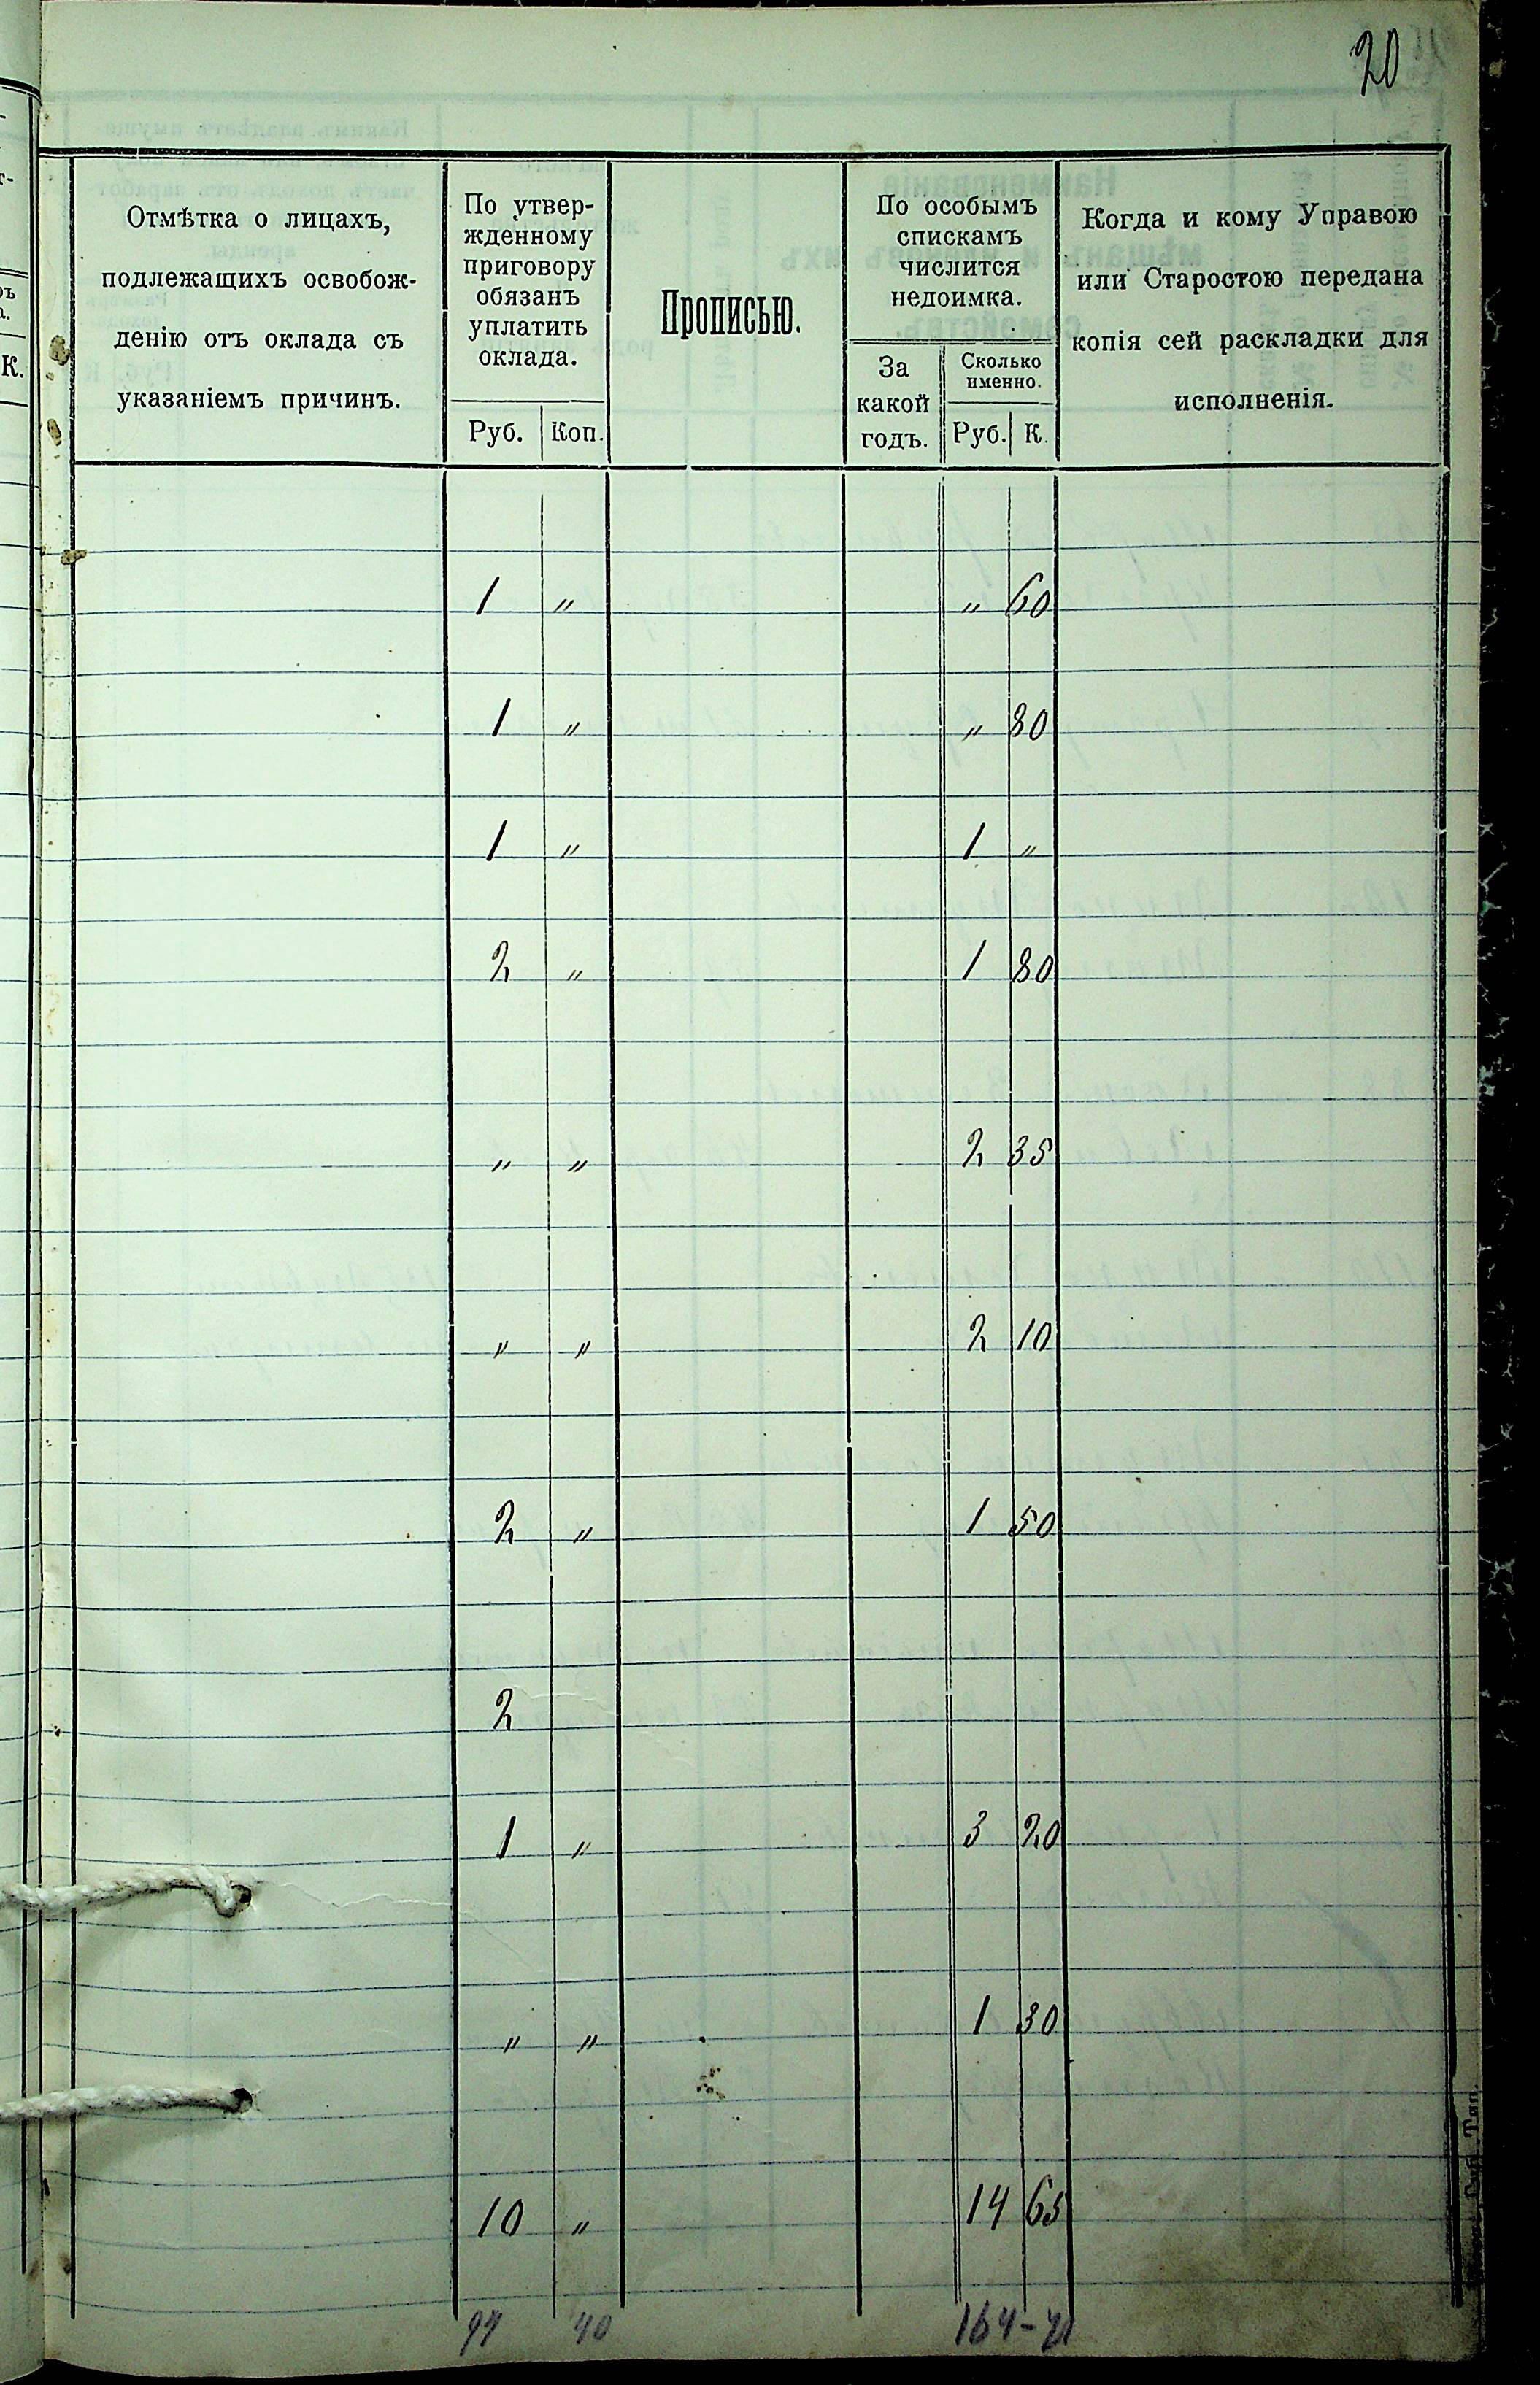 20
Отмѣтка о лицахъ,
подлежащихъ освобож-
денію отъ оклада съ
указаніемъ причинъ.
По утвер-
жденному
приговору
обязанъ
уплатить
оклада.
Руб. Коп.
Прописью.
По особымъ
спискамъ
числится
недоимка.
За
какой
годъ.
Сколько
именно.
Руб. К.
Когда и кому Управою
или Старостою передана
копія сей раскладки для
исполненія.
К.
1 " " 60
1 " " 80
1 " 1 "
2 " 1 80
" " 2 35
" " 2 10
2 " 1 50
2
1 " 3 20
" " 1 30
10 " 14 65
40